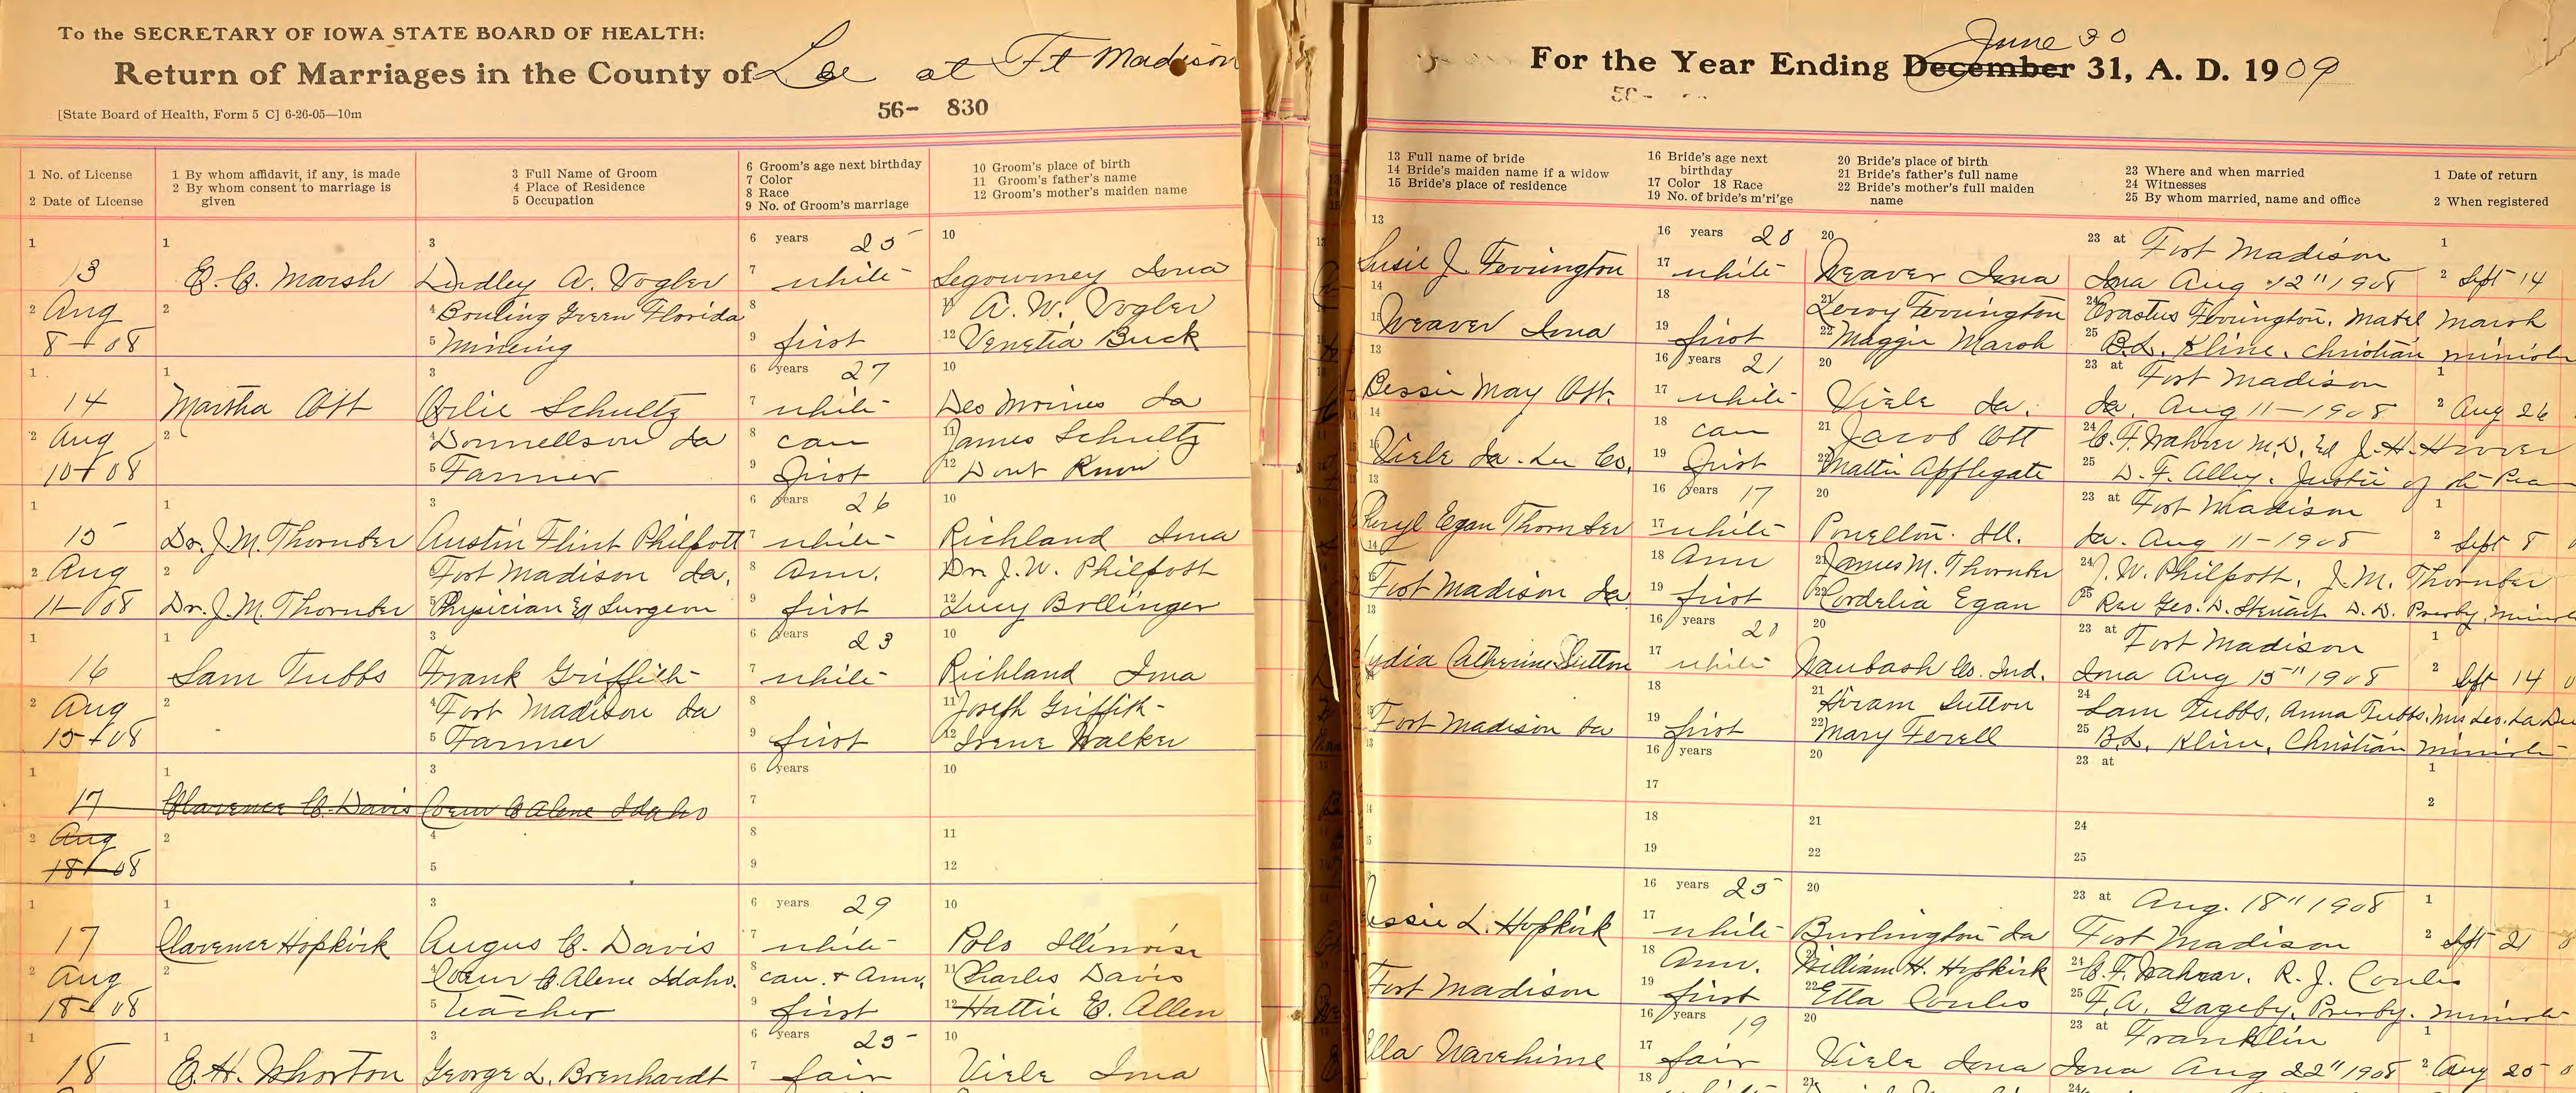 To the SECRETARY OF IOWA STATE BOARD OF HEALTH:
Return of Marriages in the County of Lee at Ft Madison
56- 830
[State Board of Health, Form 5 C] 6-26-05—10m
1 No. of License
2 Date of License
1 By whom affidavit, if any, is made
2 By whom consent to marriage is given
3 Full Name of Groom
4 Place of Residence
5 Occupation
6 Groom's age next birthday
7 Color
8 Race
9 No. of Groom's marriage
10 Groom's place of birth
11 Groom's father's name
12 Groom's mother's maiden name
1 13 1 E. C. Marsh 3 Dudley A. Vogler 6 years 25 7 white 10 Segourney Iowa
2 Aug 2 4 Bowling Green Florida 8 11 A. W. Vogler
8-08 5 Mineing 9 first 12 Venetia Buck
1 14 1 Martha Ott 3 Orlie Schultz 6 years 27 7 white 10 Des Moines Ia
2 Aug 2 4 Donnellson Ia 8 cau 11 James Schultz
10-08 5 Farmer 9 first 12 Dont Know
1 15 1 Dr. J. M. Thornber 3 Austin Flint Philpott 6 years 26 7 white 10 Richland Iowa
2 Aug 2 Fort Madison Ia. 8 Am. Dr. J. W. Philpott
11-08 Dr. J. M. Thornber 5 Physician & Surgeon 9 first 12 Lucy Bollinger
1 16 1 Sam Tubbs 3 Frank Griffith 6 years 23 7 white 10 Richland Iowa
2 Aug 2 4 Fort Madison Ia 8 11 Joseph Griffith
15-08 5 Farmer 9 first 12 Irene Walker
1 17 1 Clarence C. Davis 3 Coeur d'Alene Idaho 6 years 7 10
2 Aug 2 4 8 11
18-08 5 9 12
1 17 1 Clarence Hopkirk 3 Augus C. Davis 6 years 29 7 white 10 Polo Illinois
2 Aug 2 4 Coeur d'Alene Idaho. 8 cau. + Am. 11 Charles Davis
18-08 5 Teacher 9 first 12 Hattie E. Allen
1 18 1 E. H. Whorton 3 George L. Brenhardt 6 years 25 7 fair 10 Viele Iowa
For the Year Ending December 31, A. D. 1909
June 30
56-
13 Full name of bride
14 Bride's maiden name if a widow
15 Bride's place of residence
16 Bride's age next birthday
17 Color 18 Race
19 No. of bride's m'ri'ge
20 Bride's place of birth
21 Bride's father's full name
22 Bride's mother's full maiden name
23 Where and when married
24 Witnesses
25 By whom married, name and office
1 Date of return
2 When registered
13 Susie J. Fovrington 16 years 20 17 white 20 Weaver Iowa 23 at Fort Madison Iowa Aug 12" 1908 1 2 Sept 14
14 18 21 Leroy Fovrington 24 Erastus Fovrington. Mabel Marsh
15 Weaver Iowa 19 first 22 Maggie Marsh 25 B.L. Kline. Christian minister
13 Bessie May Ott. 16 years 21 17 white 20 Viele Ia. 23 at Fort Madison Ia. Aug 11-1908 1 2 Aug 26
14 18 cau 21 Jacob Ott 24 C. F. Wahrer M.D. J. H. Hoover
15 Viele Ia. Lee Co. 19 first 22 Mattie Applegate 25 D. F. Alley. Justice of the
13 Egan Thornber 16 years 17 17 white 20 Powellton. Ill. 23 at Fort Madison Ia. Aug 11-1908 1 2 Sept 8
14 18 Am 21 James M. Thornber 24 J. W. Philpott. J. M. Thornber
15 Fort Madison Ia 19 first 22 Cordelia Egan 25 Rev Geo. D. Stewart D. D. Presby.
13 Lydia Catherine Sutton 16 years 20 17 white 20 Waubash Co. Ind. 23 at Fort Madison Iowa Aug 15" 1908 1 2 Sept 14
18 21 Hiram Sutton 24 Sam Tubbs, Anna Tubbs.
15 Fort Madison Ia 19 first 22 Mary Ferell 25 B.L. Kline, Christian minister
13 16 years 17 20 23 at 1 2
14 18 21 24
15 19 22 25
Jessie L. Hopkirk 16 years 25 17 white 20 Burlington Ia 23 at Aug. 18" 1908 Fort Madison 1 2 Sept 21
18 Am. 21 William H. Hopkirk 24 C. F. Wahrer. R. J. Coules
Fort Madison 19 first 22 Etta Coules 25 F. A. Gageby. Presby. minister
Ella Warehime 16 years 19 17 fair 20 Viele Iowa 23 at Franklin Iowa Aug 22" 1908 1 2 Aug 25
18 21 24